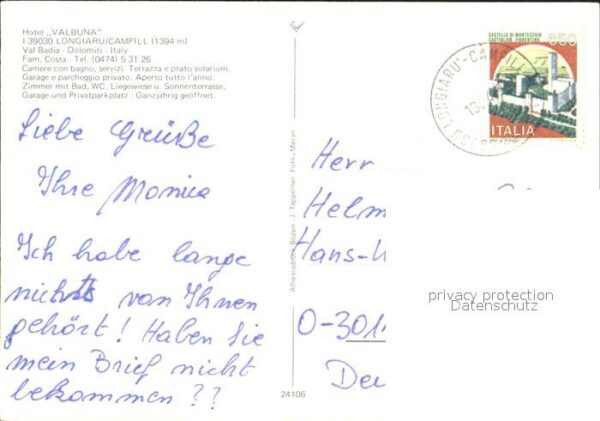 Hotel „VALBUNA"
I-39030 LONGIARU/CAMPILL (1394 m)
Val Badia - Dolomiti - Italy
Fam. Costa - Tel. (0474) 5 31 26
Camere con bagno, servizi. Terrazza e prato solarium.
Garage e parcheggio privato. Aperto tutto l'anno.
Zimmer mit Bad, WC. Liegewiese u. Sonnenterrasse,
Garage und Privatparkplatz - Ganzjährig geöffnet.
Liebe Grüße
Ihre Monica
Ich habe lange
nicht von Ihnen
gehört! Haben Sie
mein Brief nicht
bekommen??
J. Tappeiner Foto, Meran
24106
CASTELLO DI MONTECCHIO
CASTIGLION FIORENTINO
650
ITALIA
LONGIARU'-CAMPILL
Herr
Helm
Hans-
O-301
De
privacy protection
Datenschutz